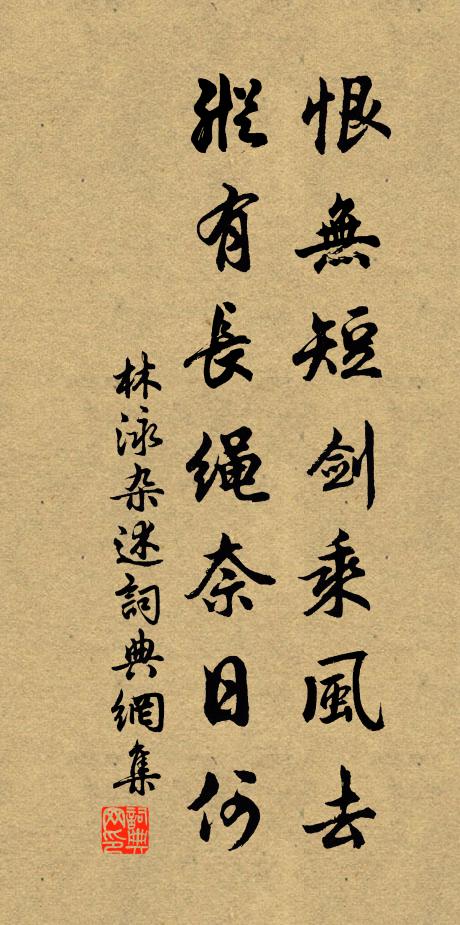 恨無短劍乘風去
縱有長绳奈日何
林泳杂述詞典網集
詞典网印